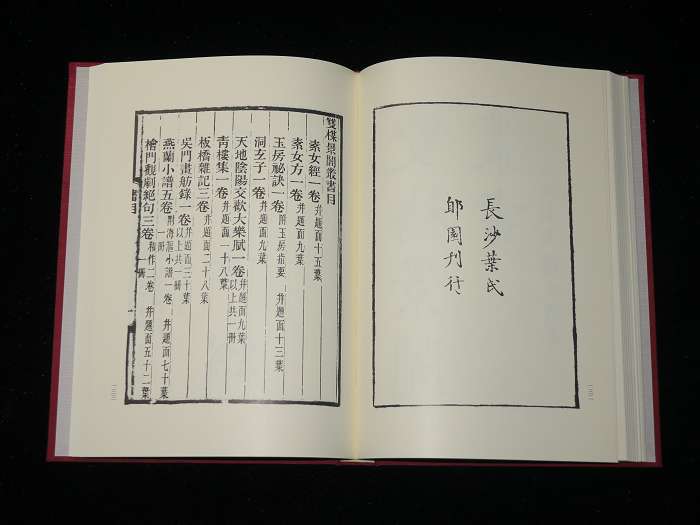 長沙葉氏
郋園刊行
雙楳景闇叢書目
素女經一卷 并題面十五葉
素女方一卷 并題面九葉
玉房祕訣一卷 附玉房指要 并題面十三葉
洞玄子一卷 并題面九葉
天地陰陽交歡大樂賦一卷 并題面九葉 以上共一冊
靑樓集一卷 并題面一十八葉
板橋雜記三卷 并題面二十八葉
吳門畫舫錄一卷 并題面三十葉 以上共一冊
燕蘭小譜五卷 附海漚小譜一卷 并題面七十葉 一冊
檜門觀劇絕句三卷 和作二卷 并題面五十二葉 一冊
書目